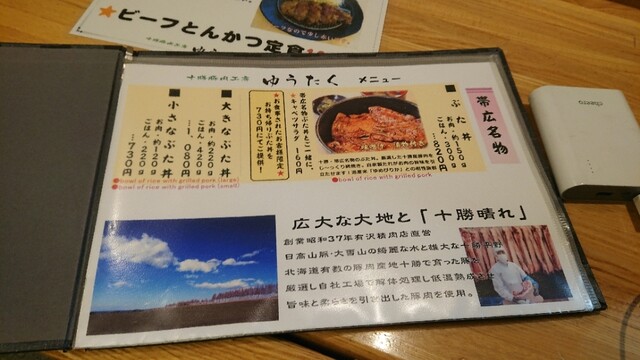 ★ビーフとんかつ定食
ゆうたく メニュー
帯広名物
■ぶた丼
お肉・約150g
ごはん・300g
820円
●bowl of rice with grilled pork
帯広名物ぶた丼と一緒に、
キャベツサラダ 160円
★お食事されたお客様限定★
お持ち帰りぶた丼を
730円にてご提供!
■大きなぶた丼
お肉・約220g
ごはん・420g
1,080円
●bowl of rice with grilled pork (large)
■小さなぶた丼
お肉・約120g
ごはん・220g
730円
●bowl of rice with grilled pork (small)
広大な大地と「十勝晴れ」
創業昭和37年有沢精肉店直営
日高山脈・大雪山の綺麗な水と雄大な十勝平野
北海道有数の豚肉産地十勝で育った豚を
厳選し自社工場で解体処理し低温熟成させ
旨味と柔らかさを引き出した豚肉を使用。